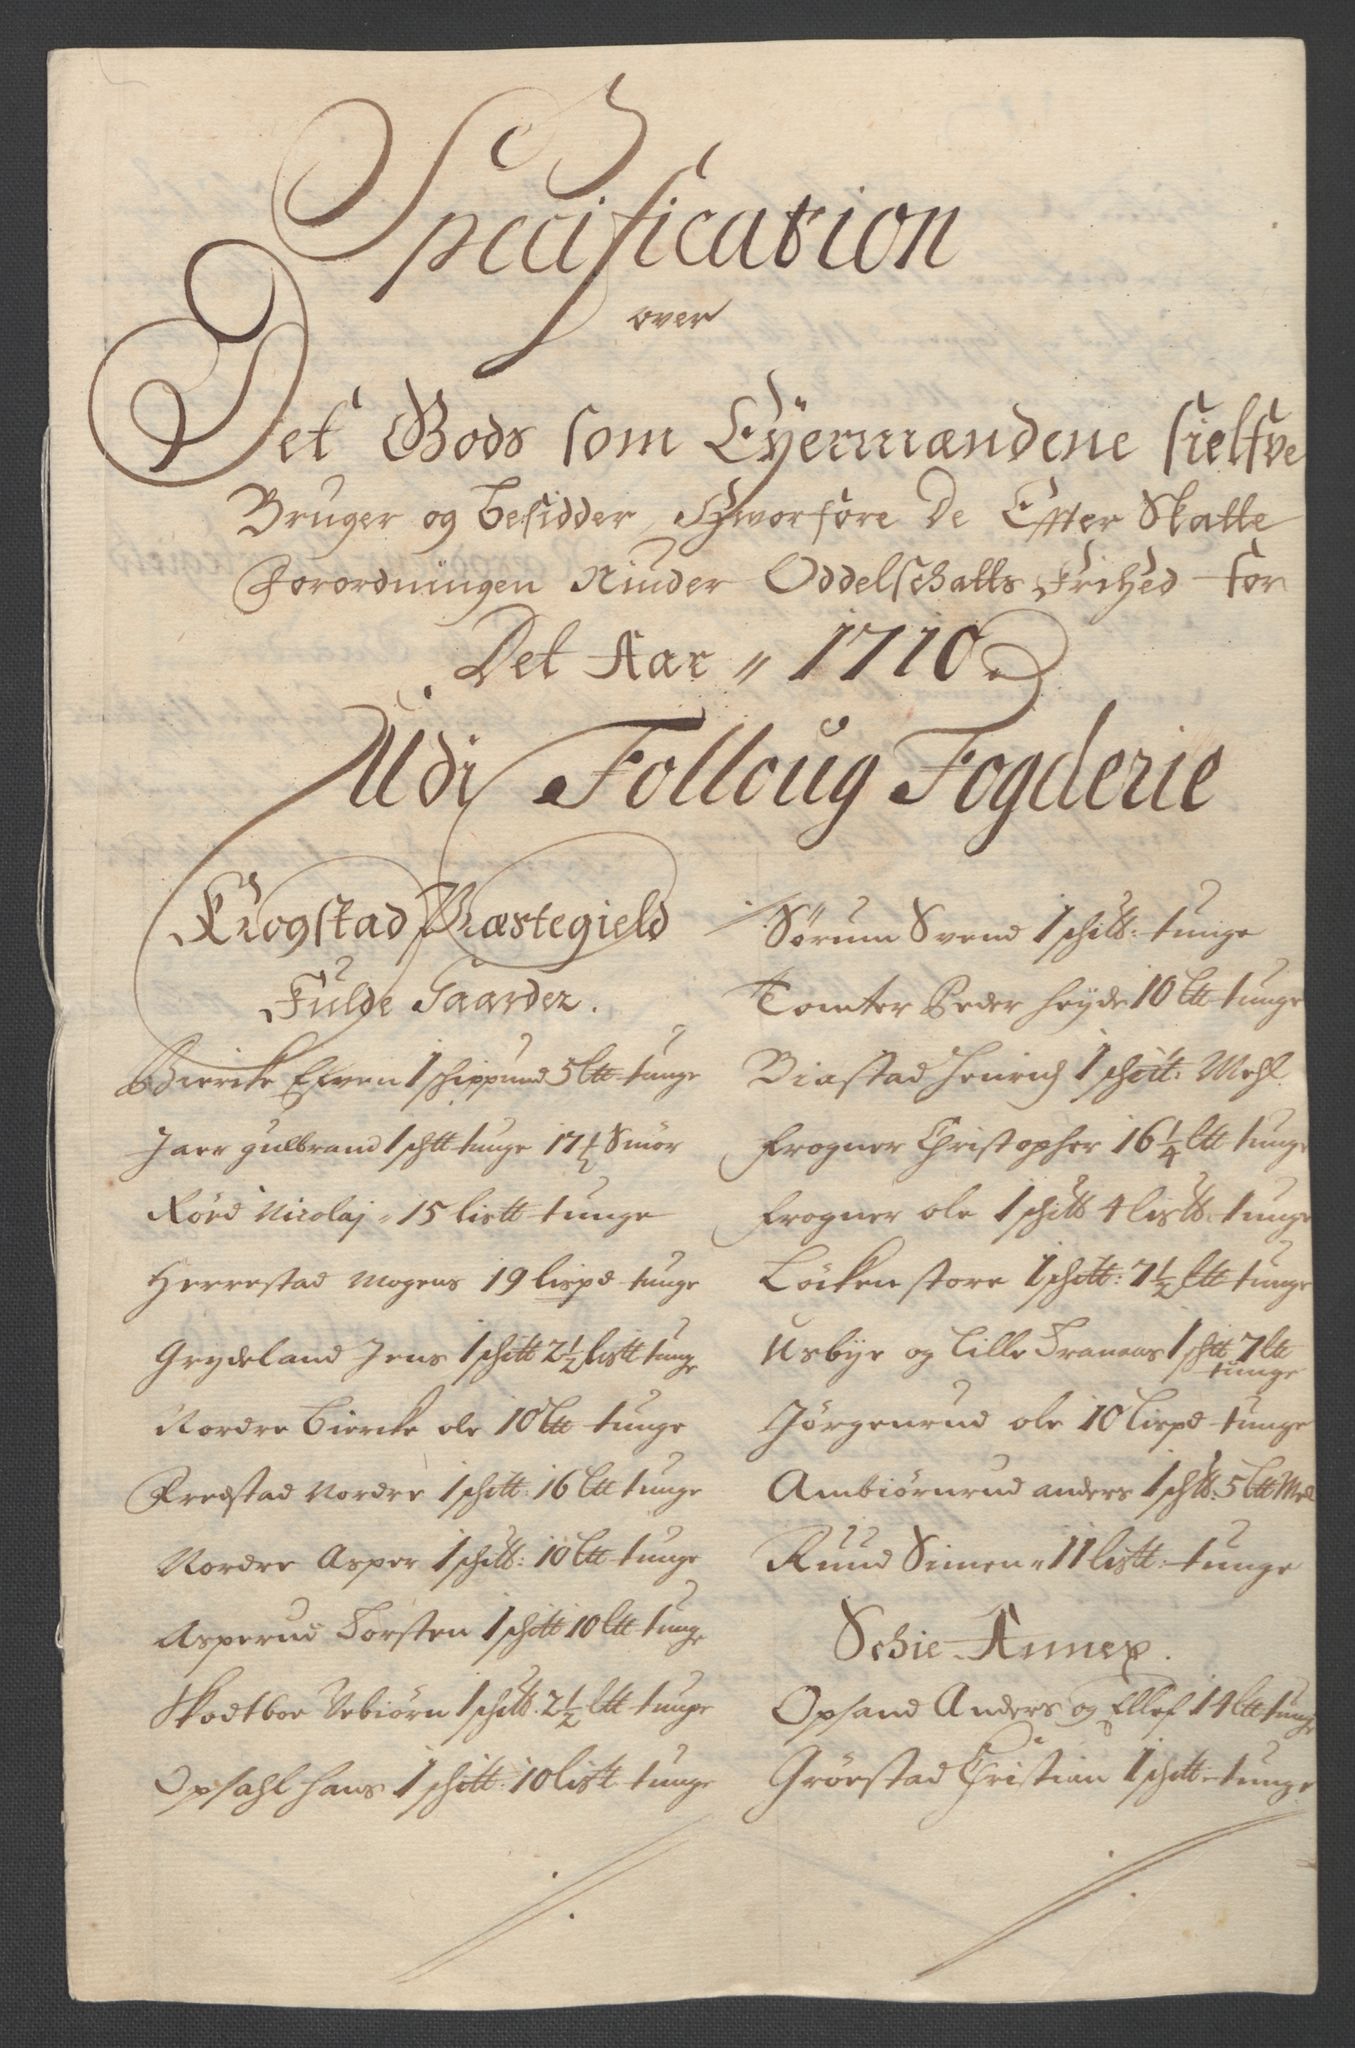 Specification
over
Det Gods som Eÿermændene sielfve
Bruger og besidder, Hworfore De Efter Skatte
Forordningen Niuder Oddelschatts Frihed for
Det Aar 1710
Udi Folloug Fogderie
Krogstad Præstegield
Fulde Gaarder.
Biercke Efven 1 schippund 5 ltt tunge
Jaer gulbrand 1 schtt tunge 17½ Smör
Rörd Nicolaj 15 listt tunge
Herrestad Mogens 19 lispd tunge
Grydeland Jens 1 schitt 2½ listt tunge
Nordre Biercke ole 10 ltt tunge
Fredstad Nordre 1 schitt: 16 ltt tunge
Nordre Asper 1 schitt: 10 ltt tunge
Asperud Torsten 1 schitt 10 ltt tunge
Skodtboe Vebiörn 1 schitt. 2½ ltt tunge
Opsahl hans 1 schitt: 10 listt tunge
Sörum Svend 1 schitt: tunge
Tomter Peder Heyde 10 ltt tunge
Biastad Henrich 1 schitt: Mehl
Frogner Christopher 16¼ ltt tunge
Frogner ole 1 schitt 4 listt: tunge
Löcken store 1 schitt: 7½ ltt tunge
Usbye og Lille Tranaas 1 schtt 7 ltt
tunge
Jörgenrud ole 10 Lispd tunge
Ambiörnrud anders 1 schtt: 5 ltt Mel
Ruud Simen 11 listt: tunge
Schie Annex.
Opsand Anders og Ellef 14 ltt tunge
Grörstad Christian 1 schitt tunge